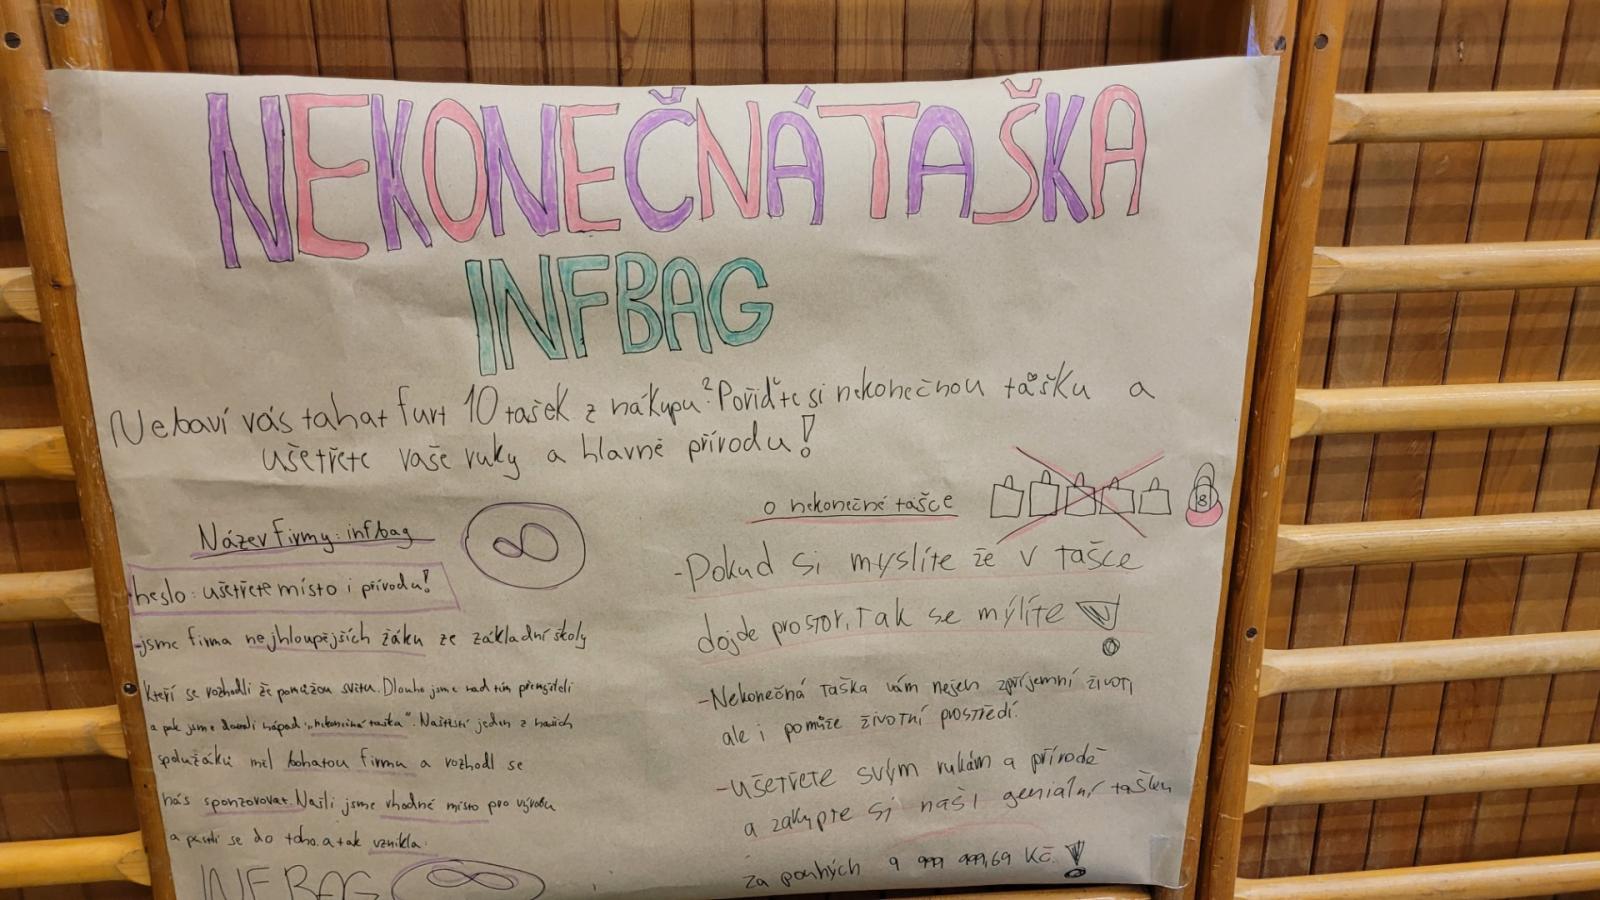 NEKONEČNÁ TAŠKA
INFBAG
Nebaví vás tahat furt 10 tašek z nákupu? Pořiďte si nekonečnou tašku a
ušetřete vaše ruky a hlavně přírodu!
Název firmy: infbag
heslo: ušetřete místo i přírodu!
-jsme firma nejhloupějších žáku ze základní školy
kteří se rozhodli že pomůžou světu. Dlouho jsme nad tím přemýšleli
a pak jsme dostali nápad: „nekonečná taška". Naštěstí jeden z našich
spolužáků měl bohatou firmu a rozhodl se
nás sponzorovat. Našli jsme vhodné místo pro výrobu
a pustili se do toho. a tak vznikla:
INFBAG
o nekonečné tašce
-Pokud si myslíte že v tašce
dojde prostor, tak se mýlíte!
-Nekonečná taška vám nejen zpříjemní život,
ale i pomůže životní prostředí.
-ušetřete svým rukám a přírodě
a zakupte si naši geniální tašku
za pouhých 9 999 999,69 Kč!